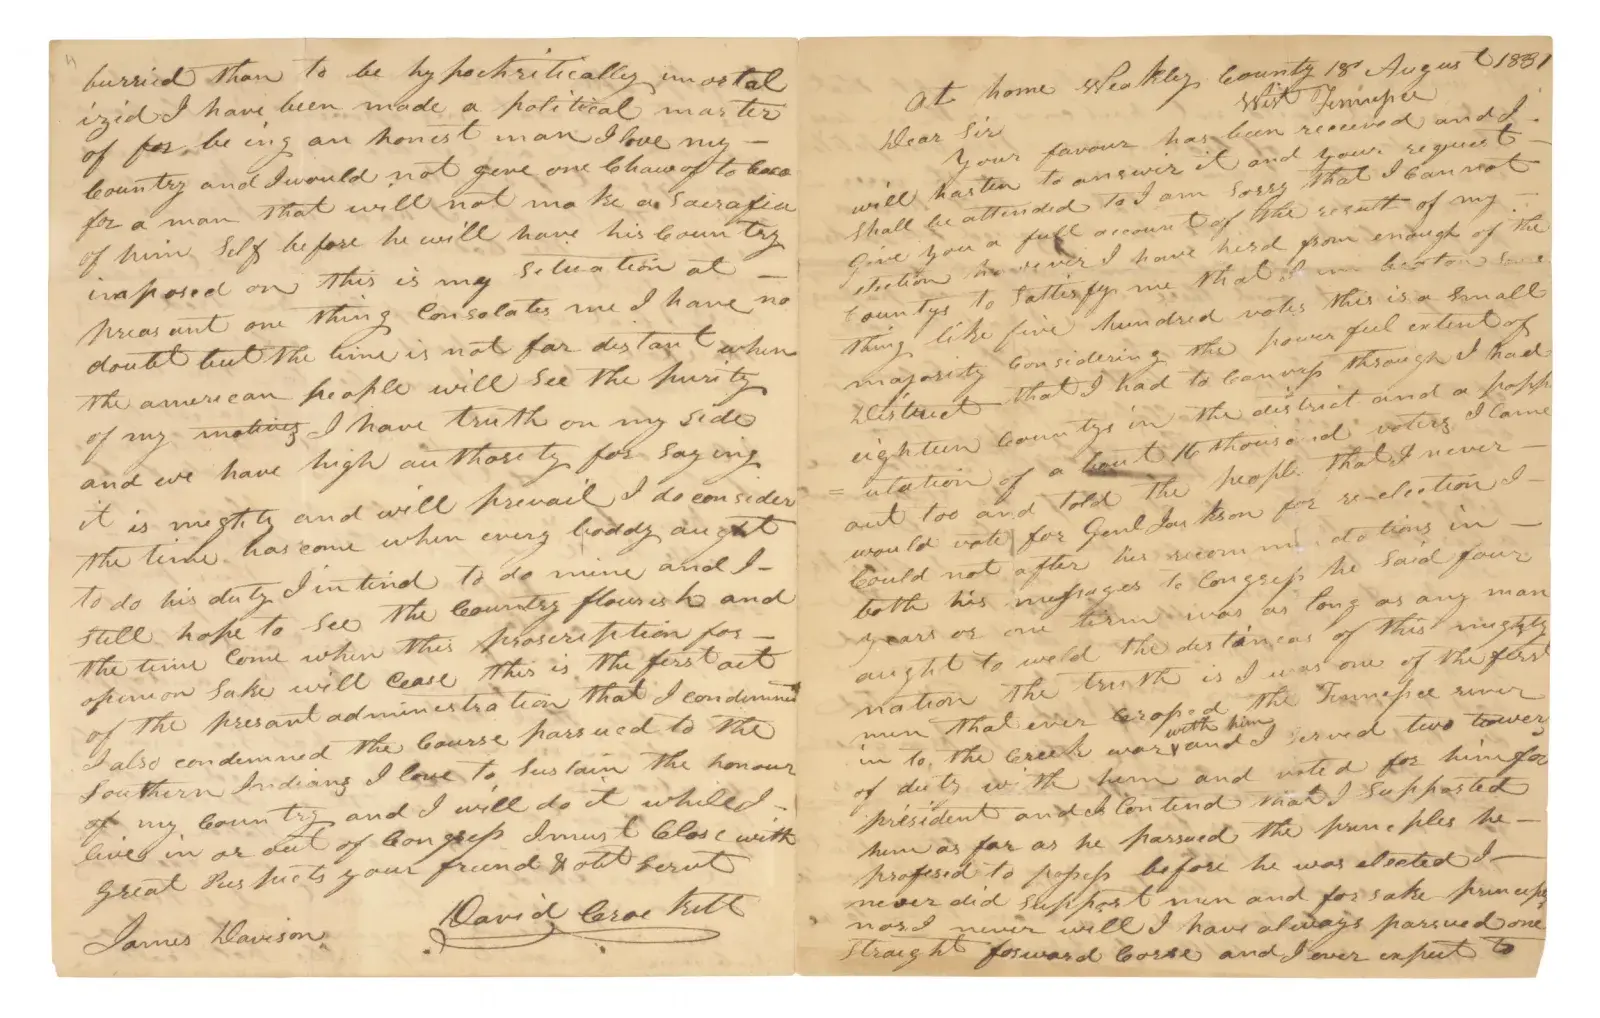 At home Weakley County 18th August 1831
West Tennessee
Dear Sir
Your favour has been received and I
will hasten to answer it and your request
Shall be attended to I am sorry that I Cannot
give you a full account of the result of my
election however I have herd from enough of the
Countys to Sattisfy me that I am beaton some
thing like five hundred votes this is a Small
majority Considering the powerfeel extent of
District that I had to Canvass through I had
eighteen Countys in the district and a popp
= ulation of a bout 16 thousand voters I Came
out too and told the people that I never —
would vote for Genl Jackson for re-election I —
Could not after his recommindations in —
both his messages to Congress he Said four
years or one term was as long as any man
aught to weld the distineas of this mighty
nation the truth is I was one of the first
men that ever Crossed the Tennessee river
in to the Creek war with him and I served two towers
of duty with him and voted for him for
president and I Contend that I Supported
him as far as he parsued the principles he —
profesed to possess before he was elected I —
never did Support men and forsake principles
nor I never will I have always parsued one
Straight forward Corse and I ever expect to
burried than to be hypochritically imortal
izid I have been made a political marter
of for being an honest man I love my —
Country and I would not geve one Chaw of to bacco
for a man that will not make a Sacrafice
of him Self before he will have his Country
imposed on this is my Situation at —
preasant one thing Consolates me I have no
doubt but the time is not far distant when
the american people will See the purity
of my motives I have truth on my Side
and we have high authority for Saying
it is mighty and will prevail I do consider
the time has come when every boddy aught
to do his duty I intend to do mine and I —
Still hope to See the Country flourish and
the time Come when this proscription for —
opinion Sake will Cease this is the first act
of the presant administration that I condemned
I also condemned the Course parsued to the
Southern Indians I love to Sustain the honour
of my Country and I will do it while I —
live in or out of Congress I must Close with
great Respects your friend & obt Servt
David Crockett
James Davison